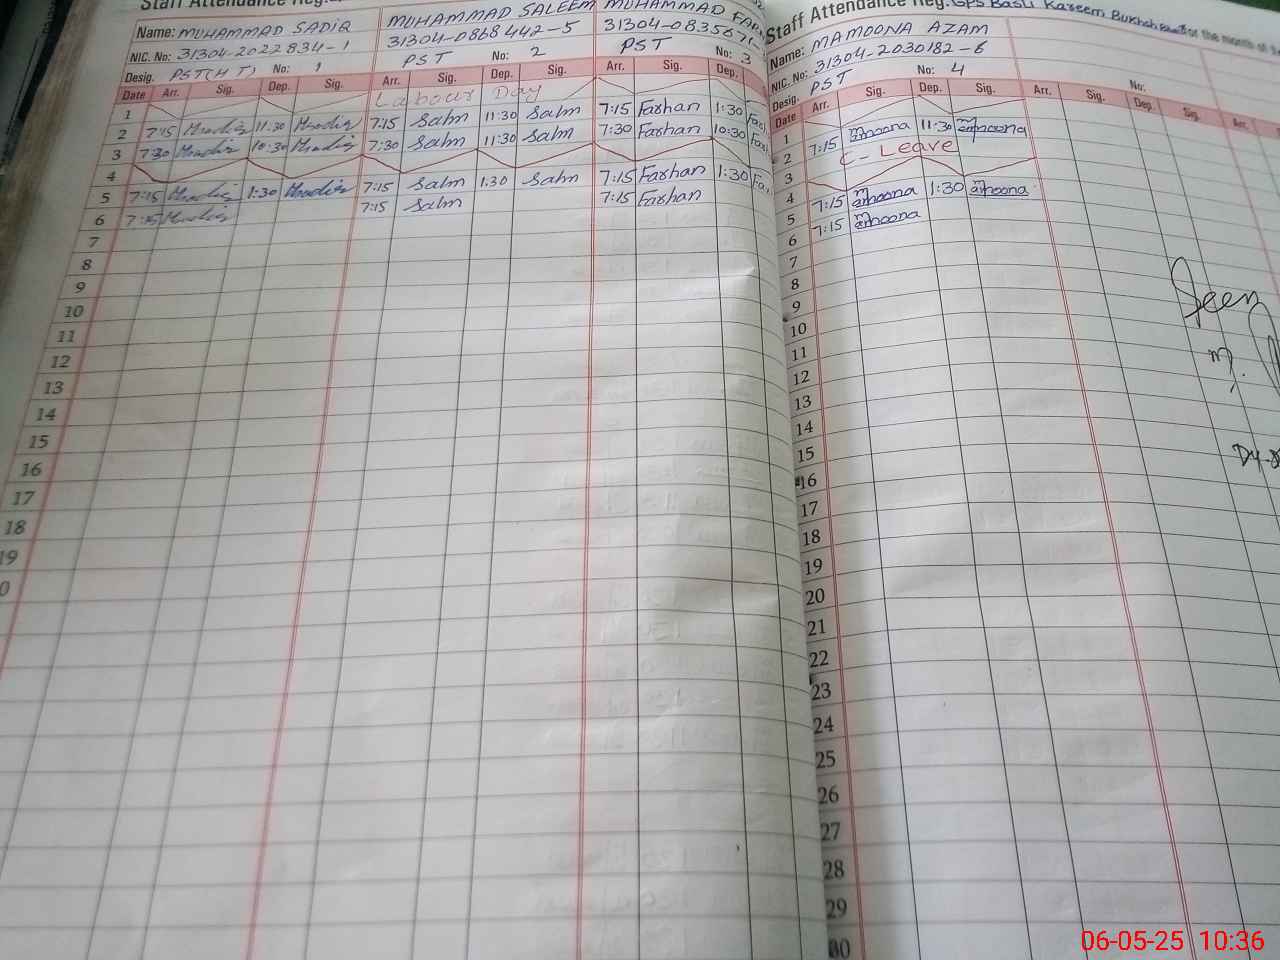 Staff Attendance Reg.
Name: MUHAMMAD SADIQ
NIC. No: 31304-2022834-1
Desig. PST(HT) No: 1
MUHAMMAD SALEEM
31304-0868442-5
PST No: 2
MUHAMMAD
31304-083567
PST No: 3
Date Arr. Sig. Dep. Sig. Arr. Sig. Dep. Sig. Arr. Sig. Dep.
1 Labour Day
2 7:15 11:30 7:15 Salm 11:30 Salm 7:15 Farhan 1:30
3 7:30 10:30 7:30 Salm 11:30 Salm 7:30 Farhan 10:30
4
5 7:15 1:30 7:15 Salm 1:30 Salm 7:15 Farhan 1:30
6 7:15 7:15 Salm 7:15 Farhan
7
8
9
10
11
12
13
14
15
16
17
18
19
Staff Attendance Reg. GPS Basti Kareem Bukhsh For the month of
Name: MAMOONA AZAM
NIC. No: 31304-2030182-6
Desig. PST No: 4
No:
Date Arr. Sig. Dep. Sig. Arr. Sig. Dep. Sig. Arr.
1
2 7:15 amoona 11:30 amoona
3 C-Leave
4
5 7:15 amoona 1:30 amoona
6 7:15 amoona
7
8
9
10
11
12
13
14
15
16
17
18
19
20
21
22
23
24
25
26
27
28
29
30
Seen
06-05-25 10:36